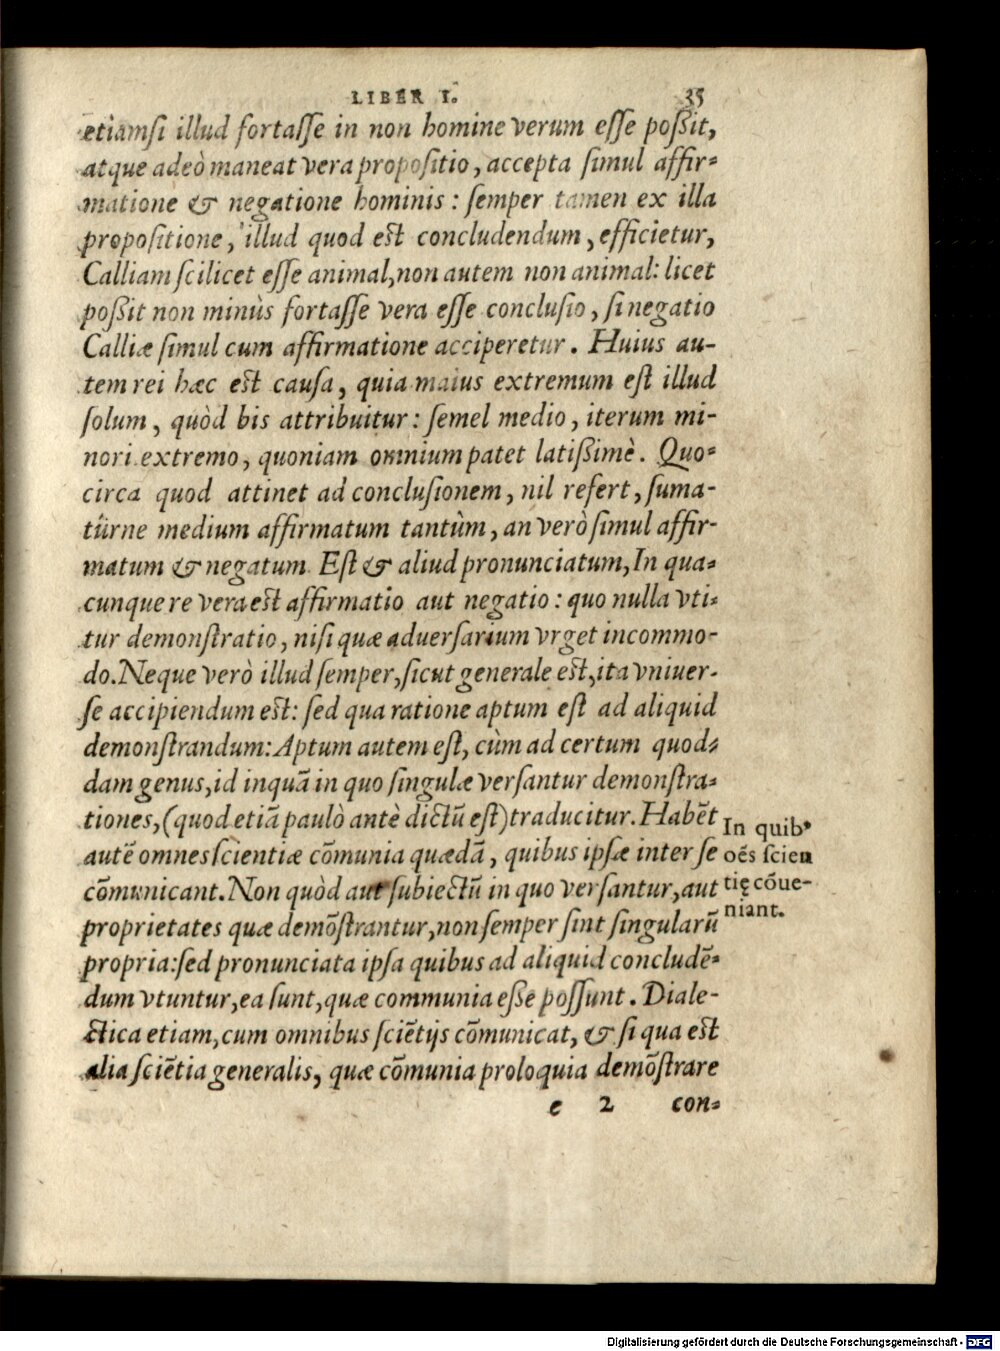 LIBER I. 35
etiamsi illud fortasse in non homine verum esse poßit,
atque adeò maneat vera propositio, accepta simul affir-
matione & negatione hominis: semper tamen ex illa
propositione, illud quod est concludendum, efficietur,
Calliam scilicet esse animal, non autem non animal: licet
poßit non minùs fortasse vera esse conclusio, si negatio
Calliæ simul cum affirmatione acciperetur. Huius au-
tem rei hæc est causa, quia maius extremum est illud
solum, quòd bis attribuitur: semel medio, iterum mi-
nori extremo, quoniam omnium patet latißimè. Quo-
circa quod attinet ad conclusionem, nil refert, suma-
túrne medium affirmatum tantùm, an verò simul affir-
matum & negatum. Est & aliud pronunciatum, In qua-
cunque re vera est affirmatio aut negatio: quo nulla vti-
tur demonstratio, nisi quæ aduersarium vrget incommo-
do. Neque verò illud semper, sicut generale est, ita vniuer-
se accipiendum est: sed qua ratione aptum est ad aliquid
demonstrandum: Aptum autem est, cùm ad certum quod-
dam genus, id inquā in quo singulæ versantur demonstra-
tiones, (quod etiā paulò antè dictū est) traducitur. Habēt
autē omnes scientiæ cōmunia quædā, quibus ipsæ inter se
cōmunicant. Non quòd aut subiectū in quo versantur, aut
proprietates quæ demōstrantur, non semper sint singularū
propria: sed pronunciata ipsa quibus ad aliquid concludē-
dum vtuntur, ea sunt, quæ communia eße possunt. Diale-
ctica etiam, cum omnibus sciētijs cōmunicat, & si qua est
alia sciētia generalis, quæ cōmunia proloquia demōstrare
e 2 con-
In quib⁹
oēs scien
tię cōue-
niant.
Digitalisierung gefördert durch die Deutsche Forschungsgemeinschaft - DFG